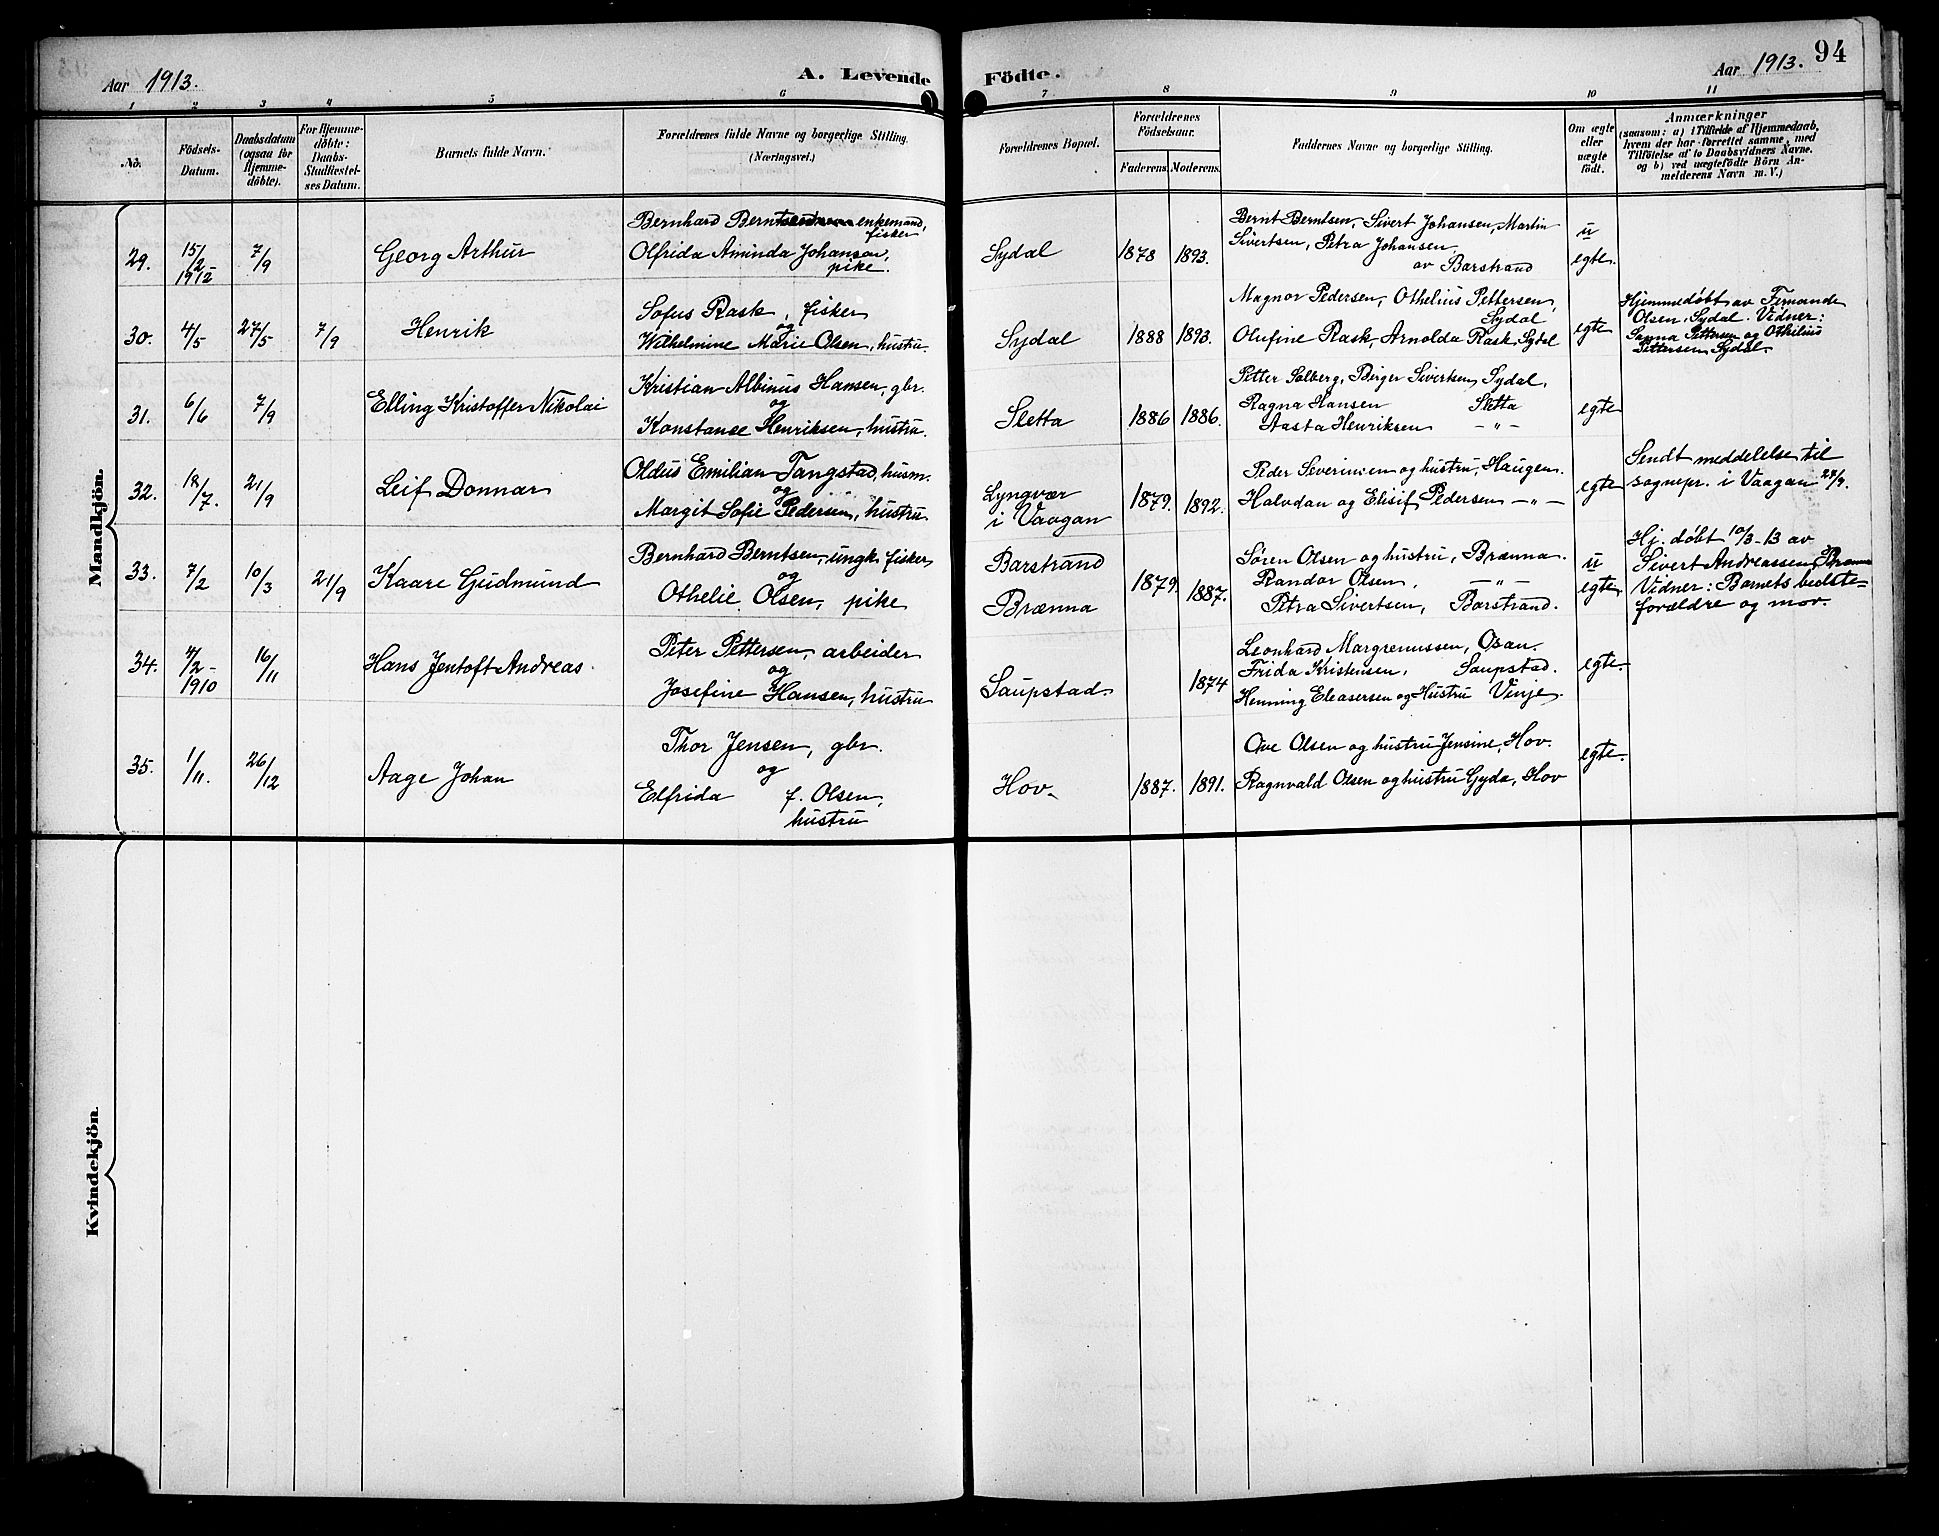 Aar 1913.
A. Levende Födte.
Aar 1913.
94
1 2 3 4 5 6 7 8 9 10 11
No.
Födsels-
Datum.
Daabsdatum
(ogsaa for
Hjemme-
döbte).
For Hjemme-
döbte:
Daabs-
Stadfæstel-
ses Datum.
Barnets fulde Navn.
Forældrenes fulde Navne og borgerlige Stilling.
(Næringsvei.)
Forældrenes Bopæl.
Forældrenes
Födselsaar.
Faderens. Moderens.
Faddernes Navne og borgerlige Stilling.
Om ægte
eller
uægte
födt.
Anmærkninger
(saasom: a) i Tilfælde af Hjemmedaab,
hvem der har forrettet samme, med
Tilföielse af to Daabsvidners Navne.
og b) ved uægtefödte Börn An-
melderens Navn m. V.)
Mandkjön.
29.
15/2
1912
7/9
Georg Arthur
Bernhard Berntsen enkemand,
fisker
Olfrida Aminda Johansen,
pike.
Sydal
1878 1893.
Bernt Berntsen, Sivert Johansen, Martin
Sivertsen, Petra Johansen
av Barstrand
u
egte.
30.
4/5
27/5
7/9
Henrik
Sofus Rask, fisker
og
Wilhelmine Marie Olsen, hustru.
Sydal
1888 1893.
Magnor Pedersen, Othelius Pettersen,
Sydal
Olufine Rask, Arnolda Rask Sydal
egte
Hjemmedøbt av Fernande
Olsen, Sydal. Vidner:
Sanna Pettersen og Othilius
Pettersen Sydal.
31.
6/6
7/9
Elling Kristoffer Nikolai
Kristian Albinus Hansen, gbr.
og
Konstanse Henriksen, hustru.
Sletta
1886 1886.
Petter Solberg, Birger Sivertsen, Sydal,
Ragna Hansen Sletta
Aasta Henriksen —"—
egte
32.
18/7.
21/9
Leif Donnar
Oldus Emilian Tangstad, husm.
og
Margit Sofie Pedersen, hustru
Lyngvær
i Vaagan
1879. 1892.
Peder Severinsen og hustru, Haugen.
Halvdan og Elisif Pedersen —"—
egte
Sendt meddelelse til
sognepr. i Vaagan 28/9.
33.
7/2
10/3
21/9
Kaare Gudmund
Bernhard Berntsen, ungk. fisker
og
Othelie Olsen, pike
Barstrand
Brænna
1879. 1887.
Søren Olsen og hustru, Brænna.
Randor Olsen, —"—
Petra Sivertsen, Barstrand.
u
egte.
Hj. døbt 10/3-13 av
Sivert Andreassen, Brænna
Vidner: Barnets bedste-
forældre og mor.
34.
4/2-
1910
16/11
Hans Jentoft Andreas.
Peter Pettersen, arbeider
og
Josefine Hansen, hustru
Saupstad
1874
Leonhard Margrenussen, Osan.
Frida Kristensen, Saupstad.
Henning Eleasersen og Hustru Vinje.
egte.
35.
1/11.
26/12
Aage Johan
Thor Jensen, gbr.
og
Elfrida f. Olsen,
hustru
Hov.
1887. 1891.
Ove Olsen og hustru Jensine, Hov.
Ragnvald Olsen og hustru Gyda, Hov
egte.
Kvindekjön.